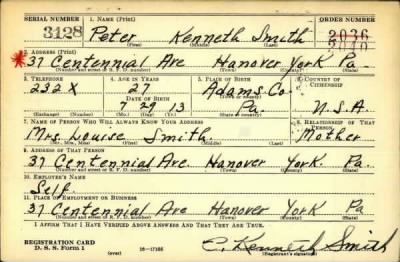 SERIAL NUMBER 1. NAME (Print) ORDER NUMBER
3128 Peter Kenneth Smith 2036
(First) (Middle) (Last)
2. ADDRESS (Print)
37 Centennial Ave Hanover York Pa.
3. TELEPHONE 4. AGE IN YEARS 5. PLACE OF BIRTH 6. COUNTRY OF CITIZENSHIP
232X 27 Adams Co.
DATE OF BIRTH
7 29 13 Pa. U.S.A.
(Exchange) (Number) (Mo.) (Day) (Yr.) (State or county)
7. NAME OF PERSON WHO WILL ALWAYS KNOW YOUR ADDRESS 8. RELATIONSHIP OF THAT PERSON
Mrs. Louise Smith. Mother
(Mr., Mrs., Miss) (First) (Middle) (Last)
9. ADDRESS OF THAT PERSON
37 Centennial Ave. Hanover York Pa.
10. EMPLOYER'S NAME
Self.
11. PLACE OF EMPLOYMENT OR BUSINESS
37 Centennial Ave Hanover York Pa
I AFFIRM THAT I HAVE VERIFIED ABOVE ANSWERS AND THAT THEY ARE TRUE.
REGISTRATION CARD
D. S. S. Form 1 (over) Kenneth Smith
(Registrant's signature)